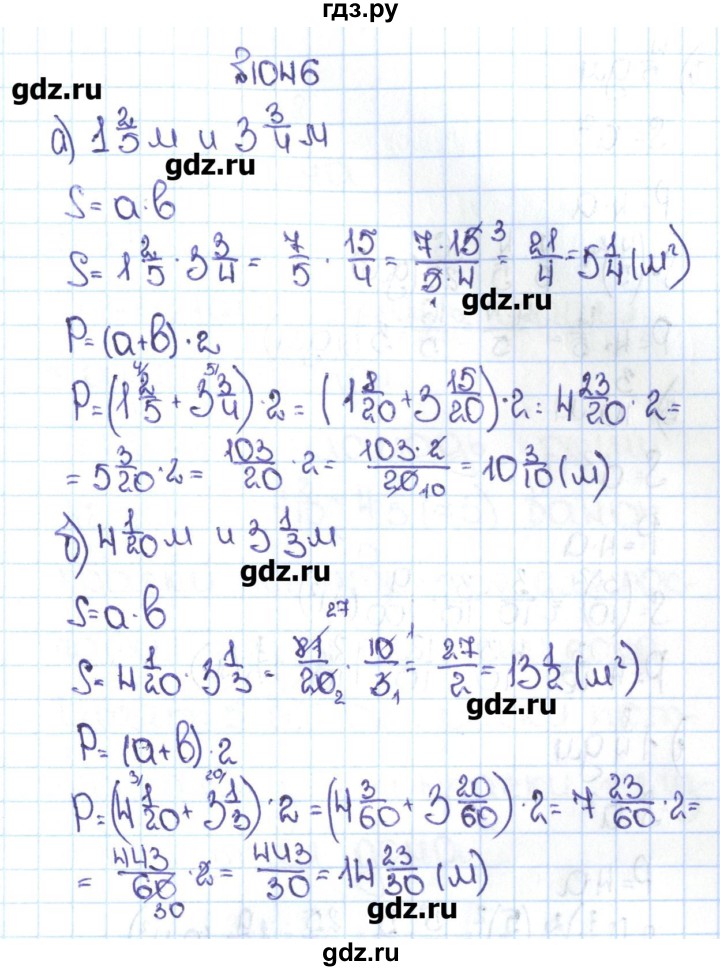 гдз.ру
№1046
gdz.ru
а) 1 2/5 м и 3 3/4 м
gdz.ru
S = a·b
S = 1 2/5 · 3 3/4 = 7/5 · 15/4 = 7·15 3/5·4 1 = 21/4 = 5 1/4 (м²)
gdz.ru
P = (a+b)·2
P = (1 2/5 4/ + 3 3/4 5/)·2 = (1 8/20 + 3 15/20)·2 = 4 23/20 · 2 =
= 5 3/20 · 2 = 103/20 · 2 = 103·2/20 10 = 10 3/10 (м)
gdz.ru
б) 4 1/20 м и 3 1/3 м
gdz.ru
S = a·b
S = 4 1/20 · 3 1/3 = 81 27/20 2 · 10 1/3 1 = 27/2 = 13 1/2 (м²)
gdz.ru
P = (a+b)·2
P = (4 1/20 3/ + 3 1/3 20/)·2 = (4 3/60 + 3 20/60)·2 = 7 23/60 · 2 =
= 443/60 30 · 2 = 443/30 = 14 23/30 (м)
gdz.ru
gdz.ru